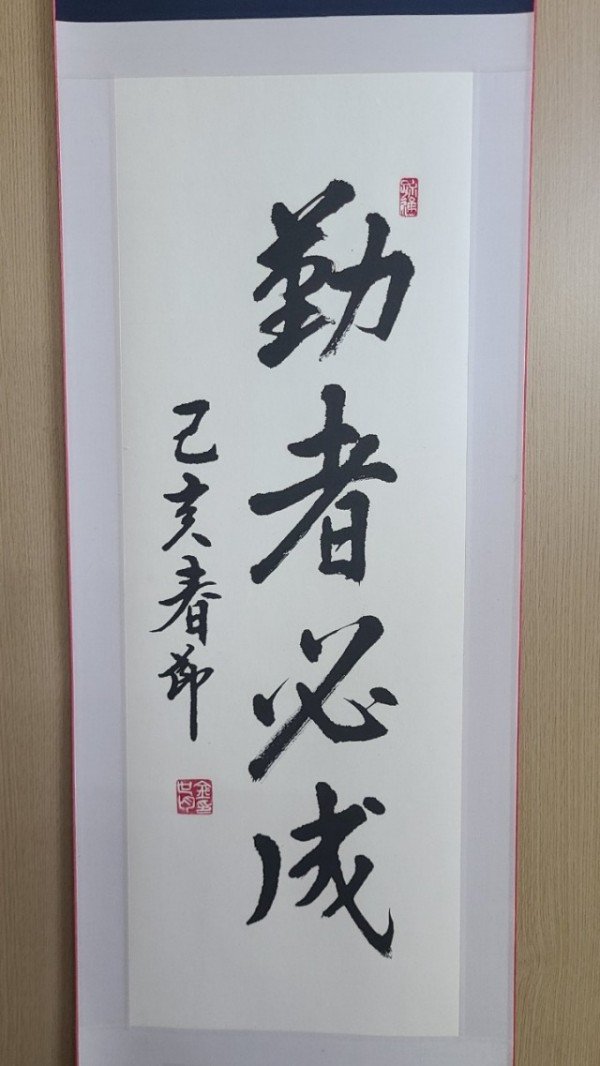 勤者必成
己亥春節